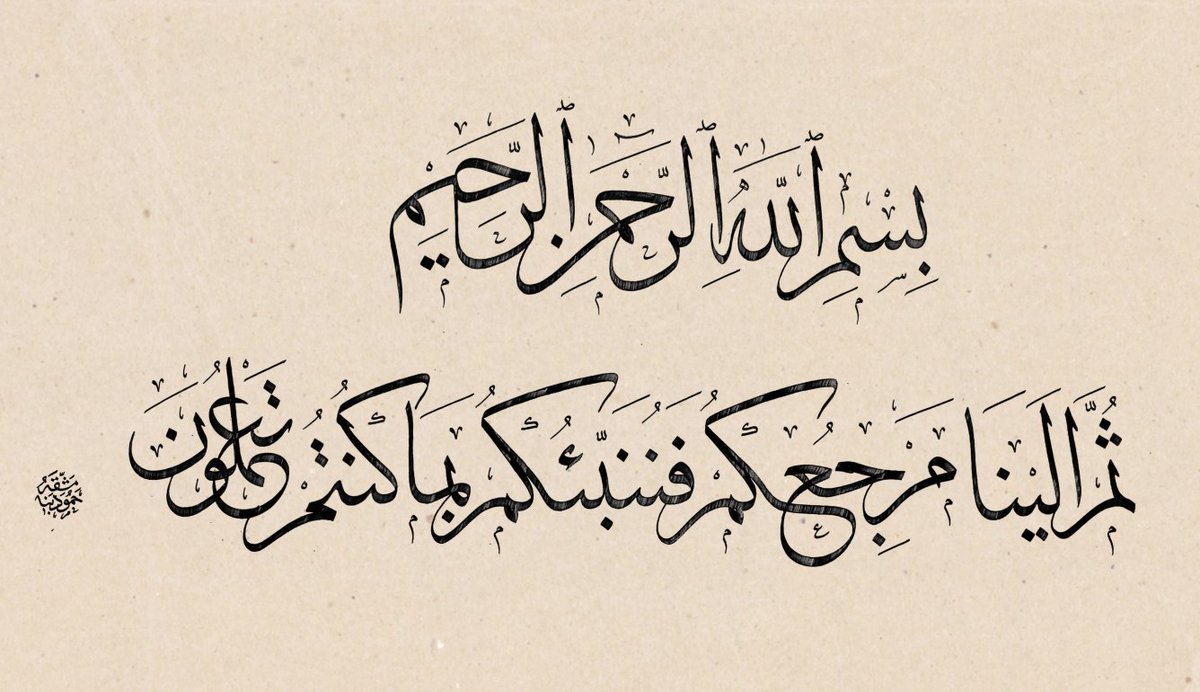 بِسْمِ ٱللَّهِ ٱلرَّحْمٰنِ ٱلرَّحِيمِ
ثُمَّ الَيْنَا مَرْجِعُكُمْ فَنُنَبِّئُكُمْ بِمَا كُنْتُمْ تَعْمَلُونَ
مشقه